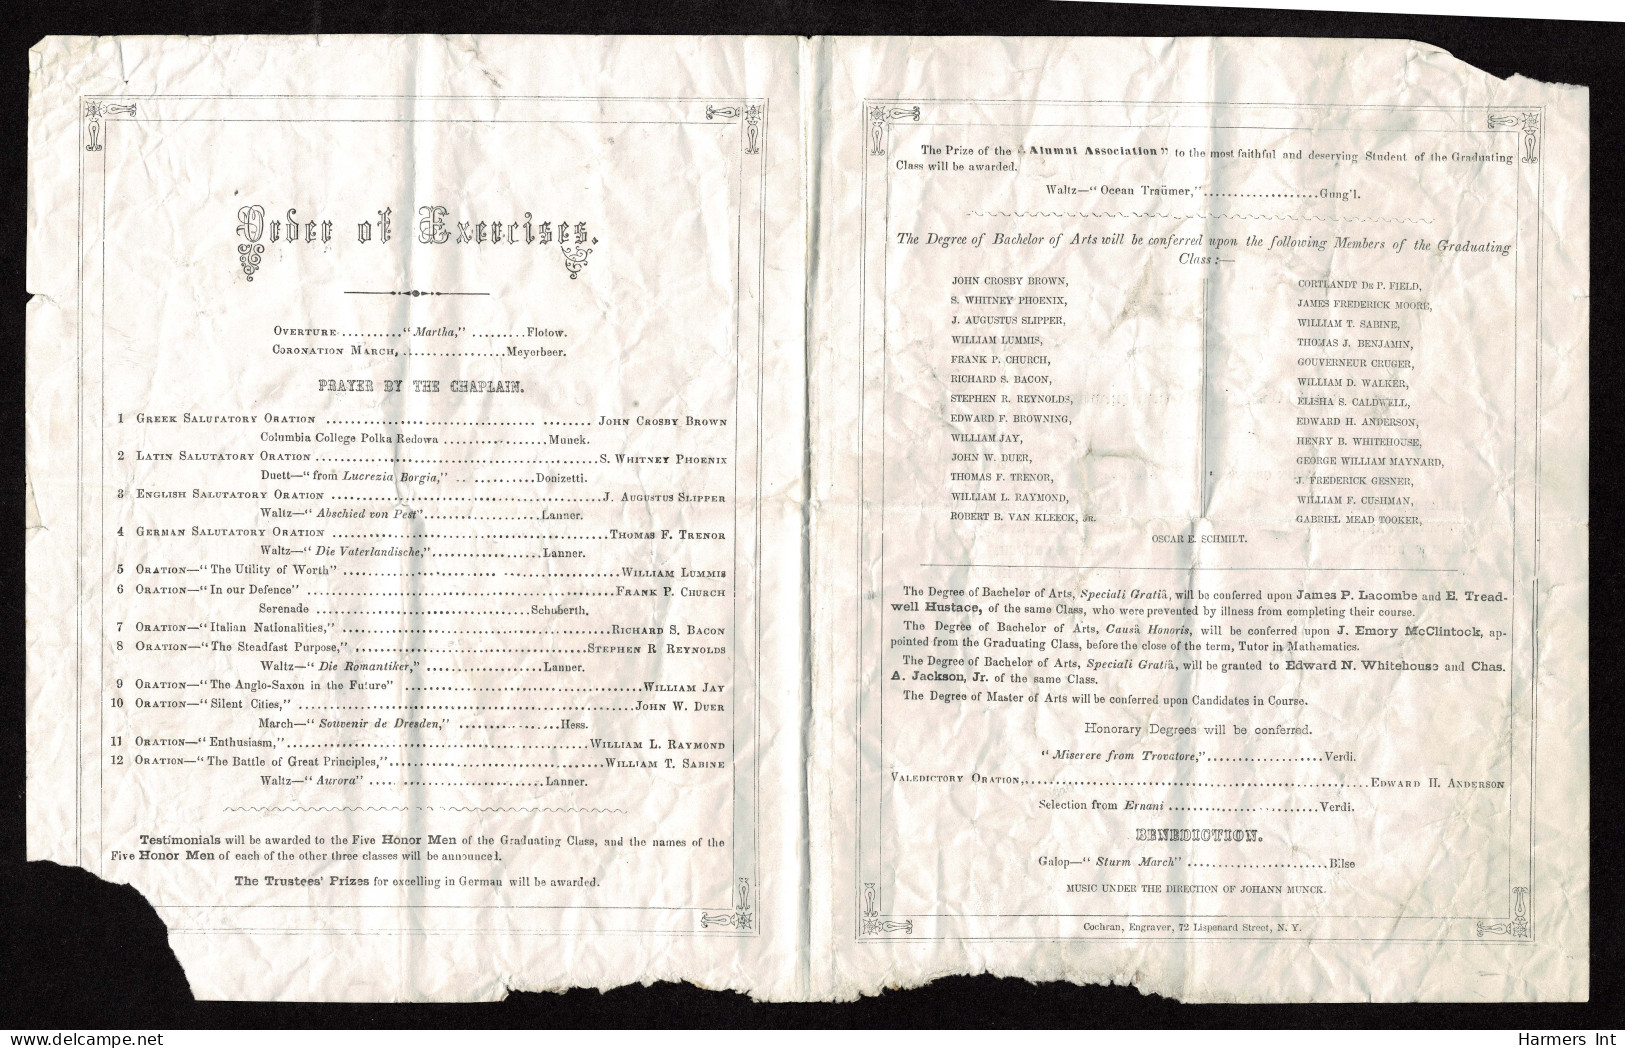 Order of Exercises.
OVERTURE.........."Martha," .........Flotow.
CORONATION MARCH, ................Meyerbeer.
PRAYER BY THE CHAPLAIN.
1 GREEK SALUTATORY ORATION ........................................ JOHN CROSBY BROWN
Columbia College Polka Redowa .................Munck.
2 LATIN SALUTATORY ORATION ........................................S. WHITNEY PHOENIX
Duett—"from Lucrezia Borgia," .. ..........Donizetti.
3 ENGLISH SALUTATORY ORATION ........................................J. AUGUSTUS SLIPPER
Waltz—"Abschied von Pest"...................Lanner.
4 GERMAN SALUTATORY ORATION ........................................THOMAS F. TRENOR
Waltz—"Die Vaterlandische,"..................Lanner.
5 ORATION—"The Utility of Worth" ........................................WILLIAM LUMMIS
6 ORATION—"In our Defence" ........................................FRANK P. CHURCH
Serenade ....................................Schuberth.
7 ORATION—"Italian Nationalities," ........................................RICHARD S. BACON
8 ORATION—"The Steadfast Purpose," ........................................STEPHEN R REYNOLDS
Waltz—"Die Romantiker," ...................Lanner.
9 ORATION—"The Anglo-Saxon in the Future" ........................................WILLIAM JAY
10 ORATION—"Silent Cities," ........................................JOHN W. DUER
March—"Souvenir de Dresden," .................Hess.
11 ORATION—"Enthusiasm,"........................................WILLIAM L. RAYMOND
12 ORATION—"The Battle of Great Principles,"....................................WILLIAM T. SABINE
Waltz—"Aurora" .............................Lanner.
Testimonials will be awarded to the Five Honor Men of the Graduating Class, and the names of the
Five Honor Men of each of the other three classes will be announced.
The Trustees' Prizes for excelling in German will be awarded.
The Prize of the "Alumni Association" to the most faithful and deserving Student of the Graduating
Class will be awarded.
Waltz—"Ocean Traümer,"...................Gung'l.
The Degree of Bachelor of Arts will be conferred upon the following Members of the Graduating
Class:—
JOHN CROSBY BROWN,
S. WHITNEY PHOENIX,
J. AUGUSTUS SLIPPER,
WILLIAM LUMMIS,
FRANK P. CHURCH,
RICHARD S. BACON,
STEPHEN R. REYNOLDS,
EDWARD F. BROWNING,
WILLIAM JAY,
JOHN W. DUER,
THOMAS F. TRENOR,
WILLIAM L. RAYMOND,
ROBERT B. VAN KLEECK, JR.
CORTLANDT DE P. FIELD,
JAMES FREDERICK MOORE,
WILLIAM T. SABINE,
THOMAS J. BENJAMIN,
GOUVERNEUR CRUGER,
WILLIAM D. WALKER,
ELISHA S. CALDWELL,
EDWARD H. ANDERSON,
HENRY B. WHITEHOUSE,
GEORGE WILLIAM MAYNARD,
J. FREDERICK GESNER,
WILLIAM F. CUSHMAN,
GABRIEL MEAD TOOKER,
OSCAR E. SCHMILT.
The Degree of Bachelor of Arts, Speciali Gratiâ, will be conferred upon James P. Lacombe and E. Tread-
well Hustace, of the same Class, who were prevented by illness from completing their course.
The Degree of Bachelor of Arts, Causâ Honoris, will be conferred upon J. Emory McClintock, ap-
pointed from the Graduating Class, before the close of the term, Tutor in Mathematics.
The Degree of Bachelor of Arts, Speciali Gratiâ, will be granted to Edward N. Whitehouse and Chas.
A. Jackson, Jr. of the same Class.
The Degree of Master of Arts will be conferred upon Candidates in Course.
Honorary Degrees will be conferred.
"Miserere from Trovatore,"...................Verdi.
VALEDICTORY ORATION,........................................EDWARD H. ANDERSON
Selection from Ernani .........................Verdi.
BENEDICTION.
Galop—"Sturm March" .......................Bilse
MUSIC UNDER THE DIRECTION OF JOHANN MUNCK.
Cochran, Engraver, 72 Lispenard Street, N. Y.
Harmers Int